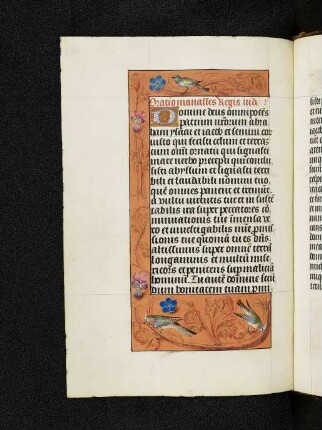 Oratio manasses Regis iud
Domine deus omnipotēs
patrum nrōrum abra
ham ysaac et iacob et semini eor
iusto qui fecisti celum et terrā
cum omī ornatu qui ligasti
mare verbo precepti qui conclu
sisti abyssum et signasti terri
bili et laudabili nomini tuo
quē omnes pauent et tremūt
a vultu virtutis tue et in susté
tabilis ira super peccatores cō
minationis tue inmensa ve
ro et inuestigabilis mīa promis
sionis tue quoniā tu es dn̄s
altissimus super omnē terrā
longanimis et multū mise
ricors et penitens sup malicia
hominū Tu autē domine secū
dum bonitatem tuam prom